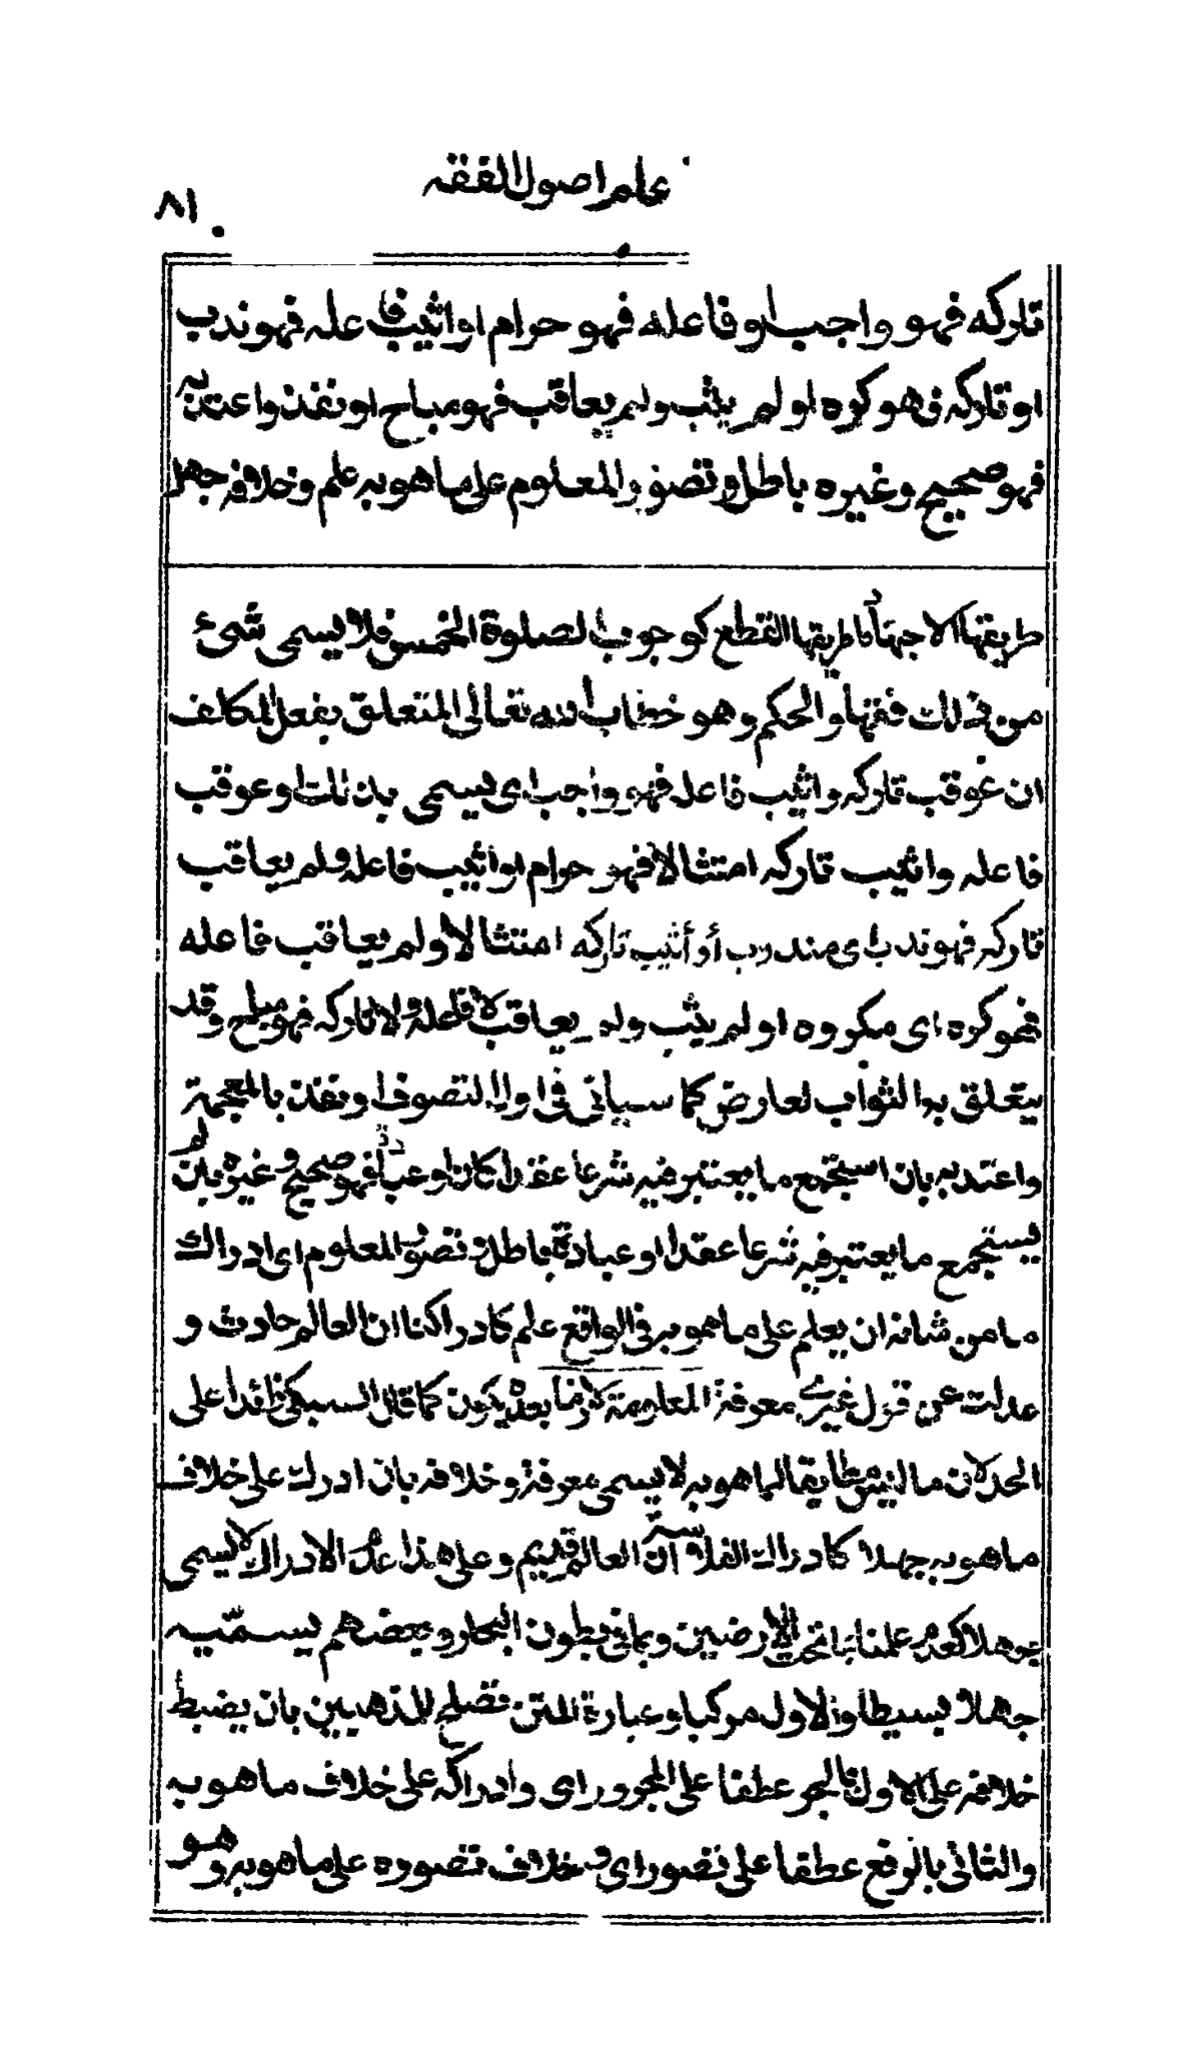 علم اصول الفقه
٨١
تاركه فهو واجب او فاعله فهو حرام او اثيب فاعله فهو ندب
او تاركه فهو كره او لم يثب ولم يعاقب فهو مباح او نفذ واعتد به
فهو صحيح وغيره باطل وتصور المعلوم على ما هو به علم وخلافه جهل
طريقها الاجتهاد ما طريقها القطع كوجوب الصلوة الخمس فلا يسمى شئ
من ذلك فقها والحكم وهو خطاب الله تعالى المتعلق بفعل المكلف
ان عوقب تاركه واثيب فاعله فهو واجب اى يسمى بذلك او عوقب
فاعله واثيب تاركه امتثالا فهو حرام او اثيب فاعله ولم يعاقب
تاركه فهو ندب اى مندوب أو أثيب تاركه امتثالا ولم يعاقب فاعله
فهو كره اى مكروه او لم يثب ولم يعاقب لا فاعله ولا تاركه فهو مباح وقد
يتعلق به الثواب لعارض كما سياتى فى اول التصوف او نفذ بالمعجمة
واعتد به بان استجمع ما يعتبر فيه شرعا عقدا كان او عبادة فهو صحيح وغيره بان لم
يستجمع ما يعتبر فيه شرعا عقدا او عبادة باطل وتصور المعلوم اى ادراك
ما من شانه ان يعلم على ما هو به فى الواقع علم كادراكنا ان العالم حادث و
عدلت عن قول غيرى معرفة المعلوم لان ما بعده يكون كما قال السبكى زائدا على
الحد لان ما ليس مطابقا لما هو به لا يسمى معرفة وخلافه بان ادرك على خلاف
ما هو به جهلا كادراك الفلاسفة ان العالم قديم وعلى هذا عدم الادراك لا يسمى
جهلا كعدم علمنا بما تحت الارضين وبما فى بطون البحار وبعضهم يسميه
جهلا بسيطا والاول مركبا وعبارة المتن تصلح للمذهبين بان يضبط
خلافه على الاول بالجر عطفا على المجرور اى وادراكه على خلاف ما هو به
والثانى بالرفع عطفا على تصور اى وخلاف تصوره على ما هو به وهو